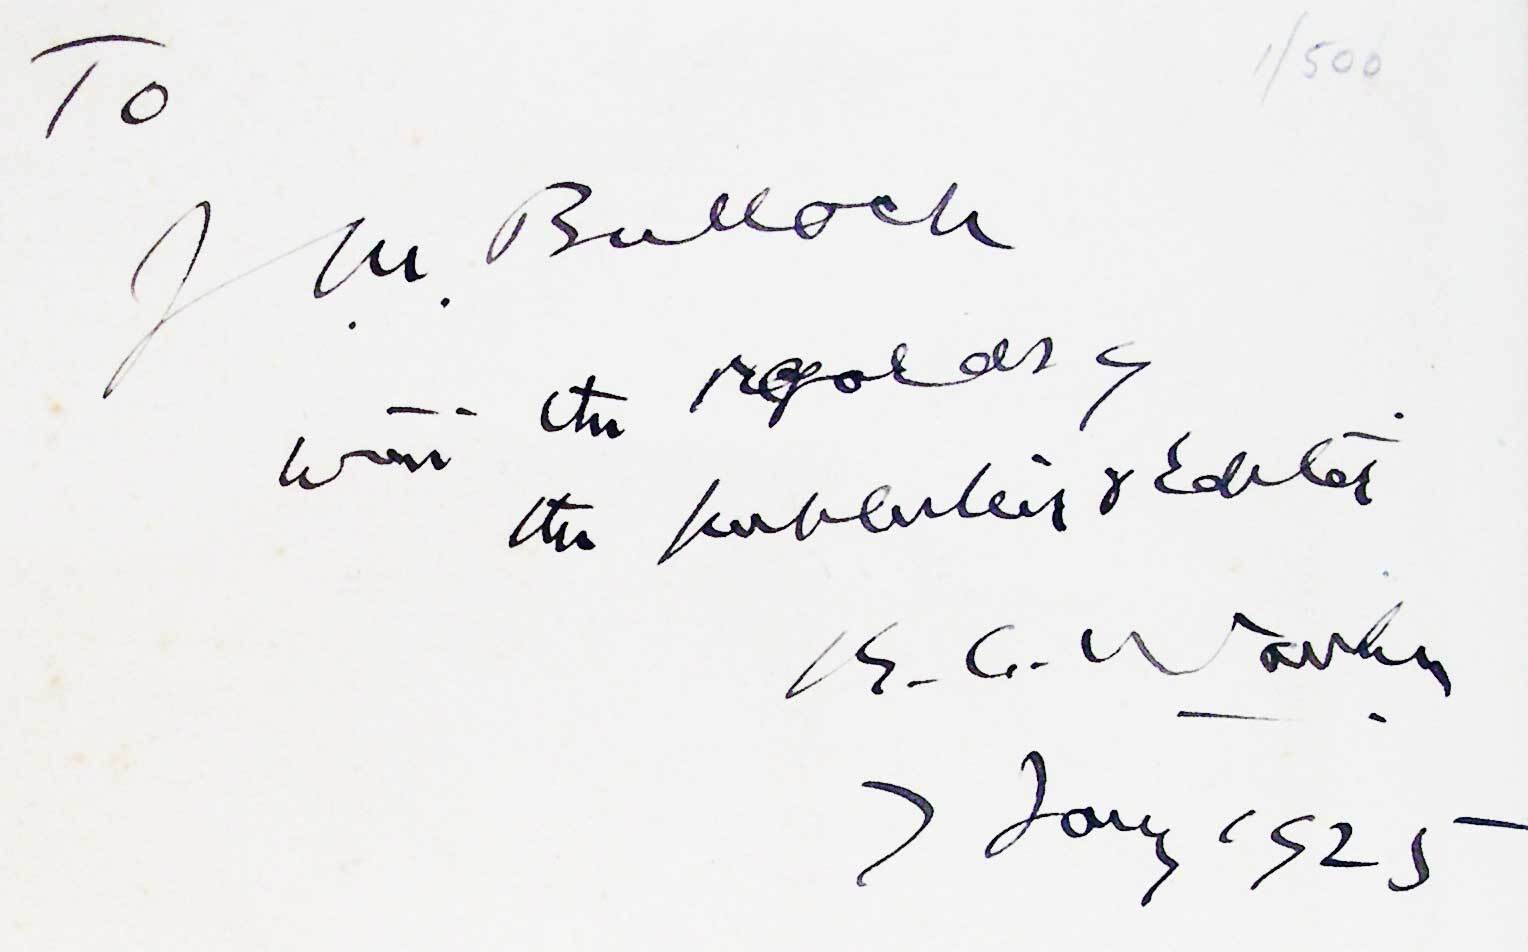 1/500
To
J. M. Bulloch
with the regards of
the publishers & Editor
7 Jany 1925